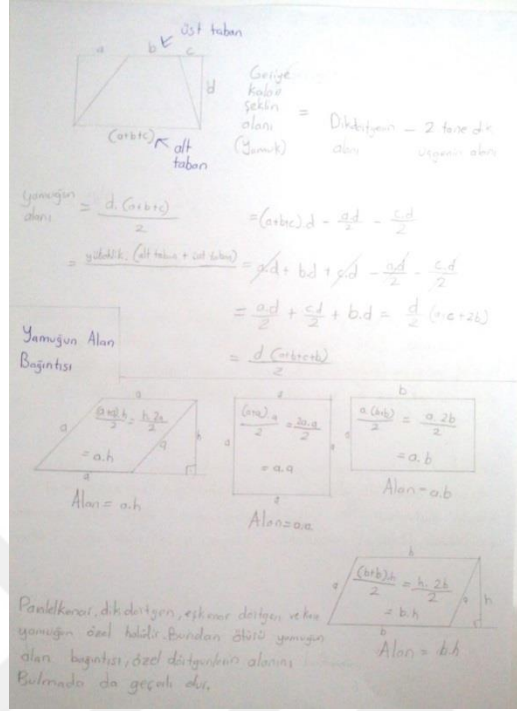 üst taban
a b c
d
(a+b+c)
alt
taban
Geriye
kalan
şeklin
alanı
(Yamuk)
= Dikdörtgenin alanı - 2 tane dik üçgenin alanı
Yamuğun
alanı
= d.(a+b+c) / 2
= (a+b+c).d - a.d/2 - c.d/2
= yükseklik.(alt taban + üst taban)
= a.d + b.d + c.d - a.d/2 - c.d/2
= a.d/2 + c.d/2 + b.d = d/2 (a+c+2b)
= d(a+b+c+b) / 2
Yamuğun Alan
Bağıntısı
a
a
(a+a).h/2 = h.2a/2
= a.h
a
h
a
Alan = a.h
a
a
(a+a).a/2 = 2a.a/2
= a.a
a
a
Alan = a.a
b
a
a.(b+b)/2 = a.2b/2
= a.b
Alan = a.b
b
a
(b+b).h/2 = h.2b/2
= b.h
a
h
b
Alan = b.h
Paralelkenar, dikdörtgen, eşkenar dörtgen ve kare
yamuğun özel halidir. Bundan ötürü yamuğun
alan bağıntısı, özel dörtgenlerin alanını
Bulmada da geçerli olur.